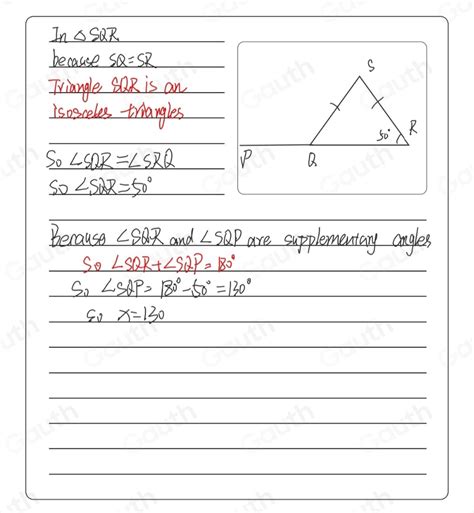 In △SQR
because SQ=SR
Triangle SQR is an
isosceles triangles
So ∠SQR=∠SRQ
so ∠SQR=50°
S
50°
R
P
Q
Because ∠SQR and ∠SQP are supplementary angles
So ∠SQR+∠SQP=180°
So ∠SQP=180°-50°=130°
so x=130